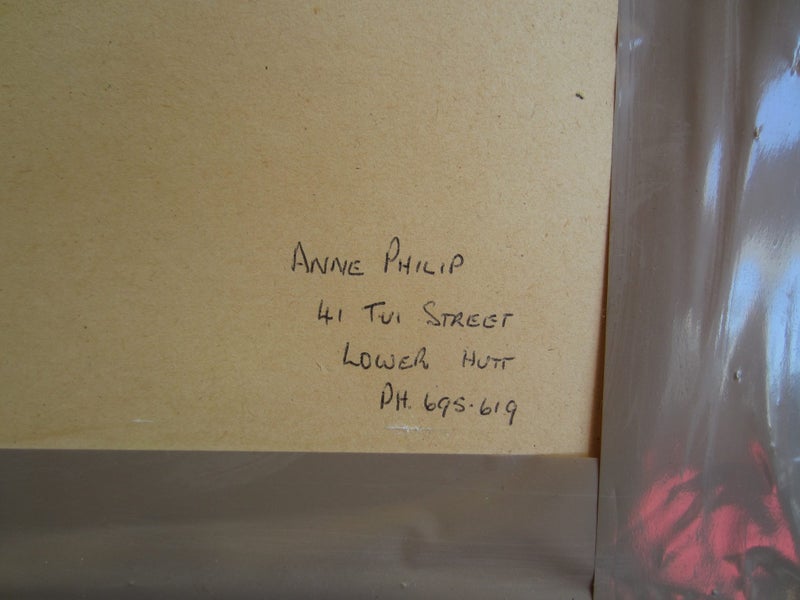 ANNE PHILIP
41 TUI STREET
LOWER HUTT
PH. 695.619